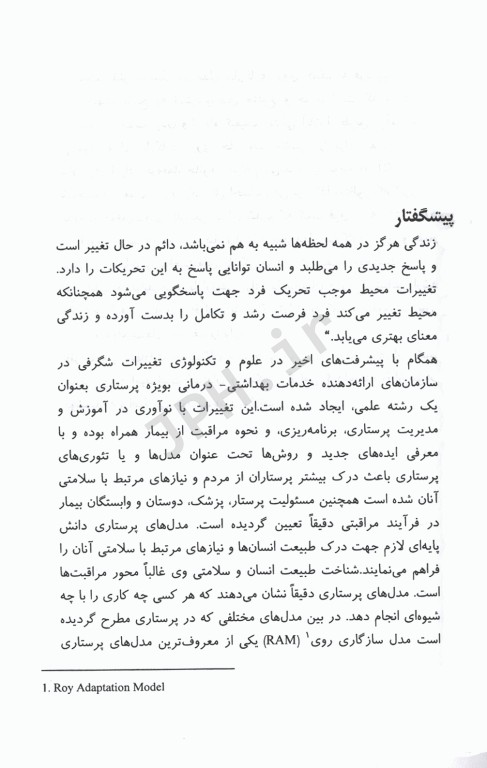 پیشگفتار
زندگی هرگز در همه لحظه‌ها شبیه به هم نمی‌باشد، دائم در حال تغییر است
و پاسخ جدیدی را می‌طلبد و انسان توانایی پاسخ به این تحریکات را دارد.
تغییرات محیط موجب تحریک فرد جهت پاسخگویی می‌شود همچنانکه
محیط تغییر می‌کند فرد فرصت رشد و تکامل را بدست آورده و زندگی
معنای بهتری می‌یابد."
همگام با پیشرفت‌های اخیر در علوم و تکنولوژی تغییرات شگرفی در
سازمان‌های ارائه‌دهنده خدمات بهداشتی- درمانی بویژه پرستاری بعنوان
یک رشته علمی، ایجاد شده است.این تغییرات با نوآوری در آموزش و
مدیریت پرستاری، برنامه‌ریزی، و نحوه مراقبت از بیمار همراه بوده و با
معرفی ایده‌های جدید و روش‌ها تحت عنوان مدل‌ها و یا تئوری‌های
پرستاری باعث درک بیشتر پرستاران از مردم و نیازهای مرتبط با سلامتی
آنان شده است همچنین مسئولیت پرستار، پزشک، دوستان و وابستگان بیمار
در فرآیند مراقبتی دقیقاً تعیین گردیده است. مدل‌های پرستاری دانش
پایه‌ای لازم جهت درک طبیعت انسان‌ها و نیازهای مرتبط با سلامتی آنان را
فراهم می‌نمایند.شناخت طبیعت انسان و سلامتی وی غالباً محور مراقبت‌ها
است. مدل‌های پرستاری دقیقاً نشان می‌دهند که هر کسی چه کاری را با چه
شیوه‌ای انجام دهد. در بین مدل‌های مختلفی که در پرستاری مطرح گردیده
است مدل سازگاری روی¹ (RAM) یکی از معروف‌ترین مدل‌های پرستاری
1. Roy Adaptation Model
JPH.ir